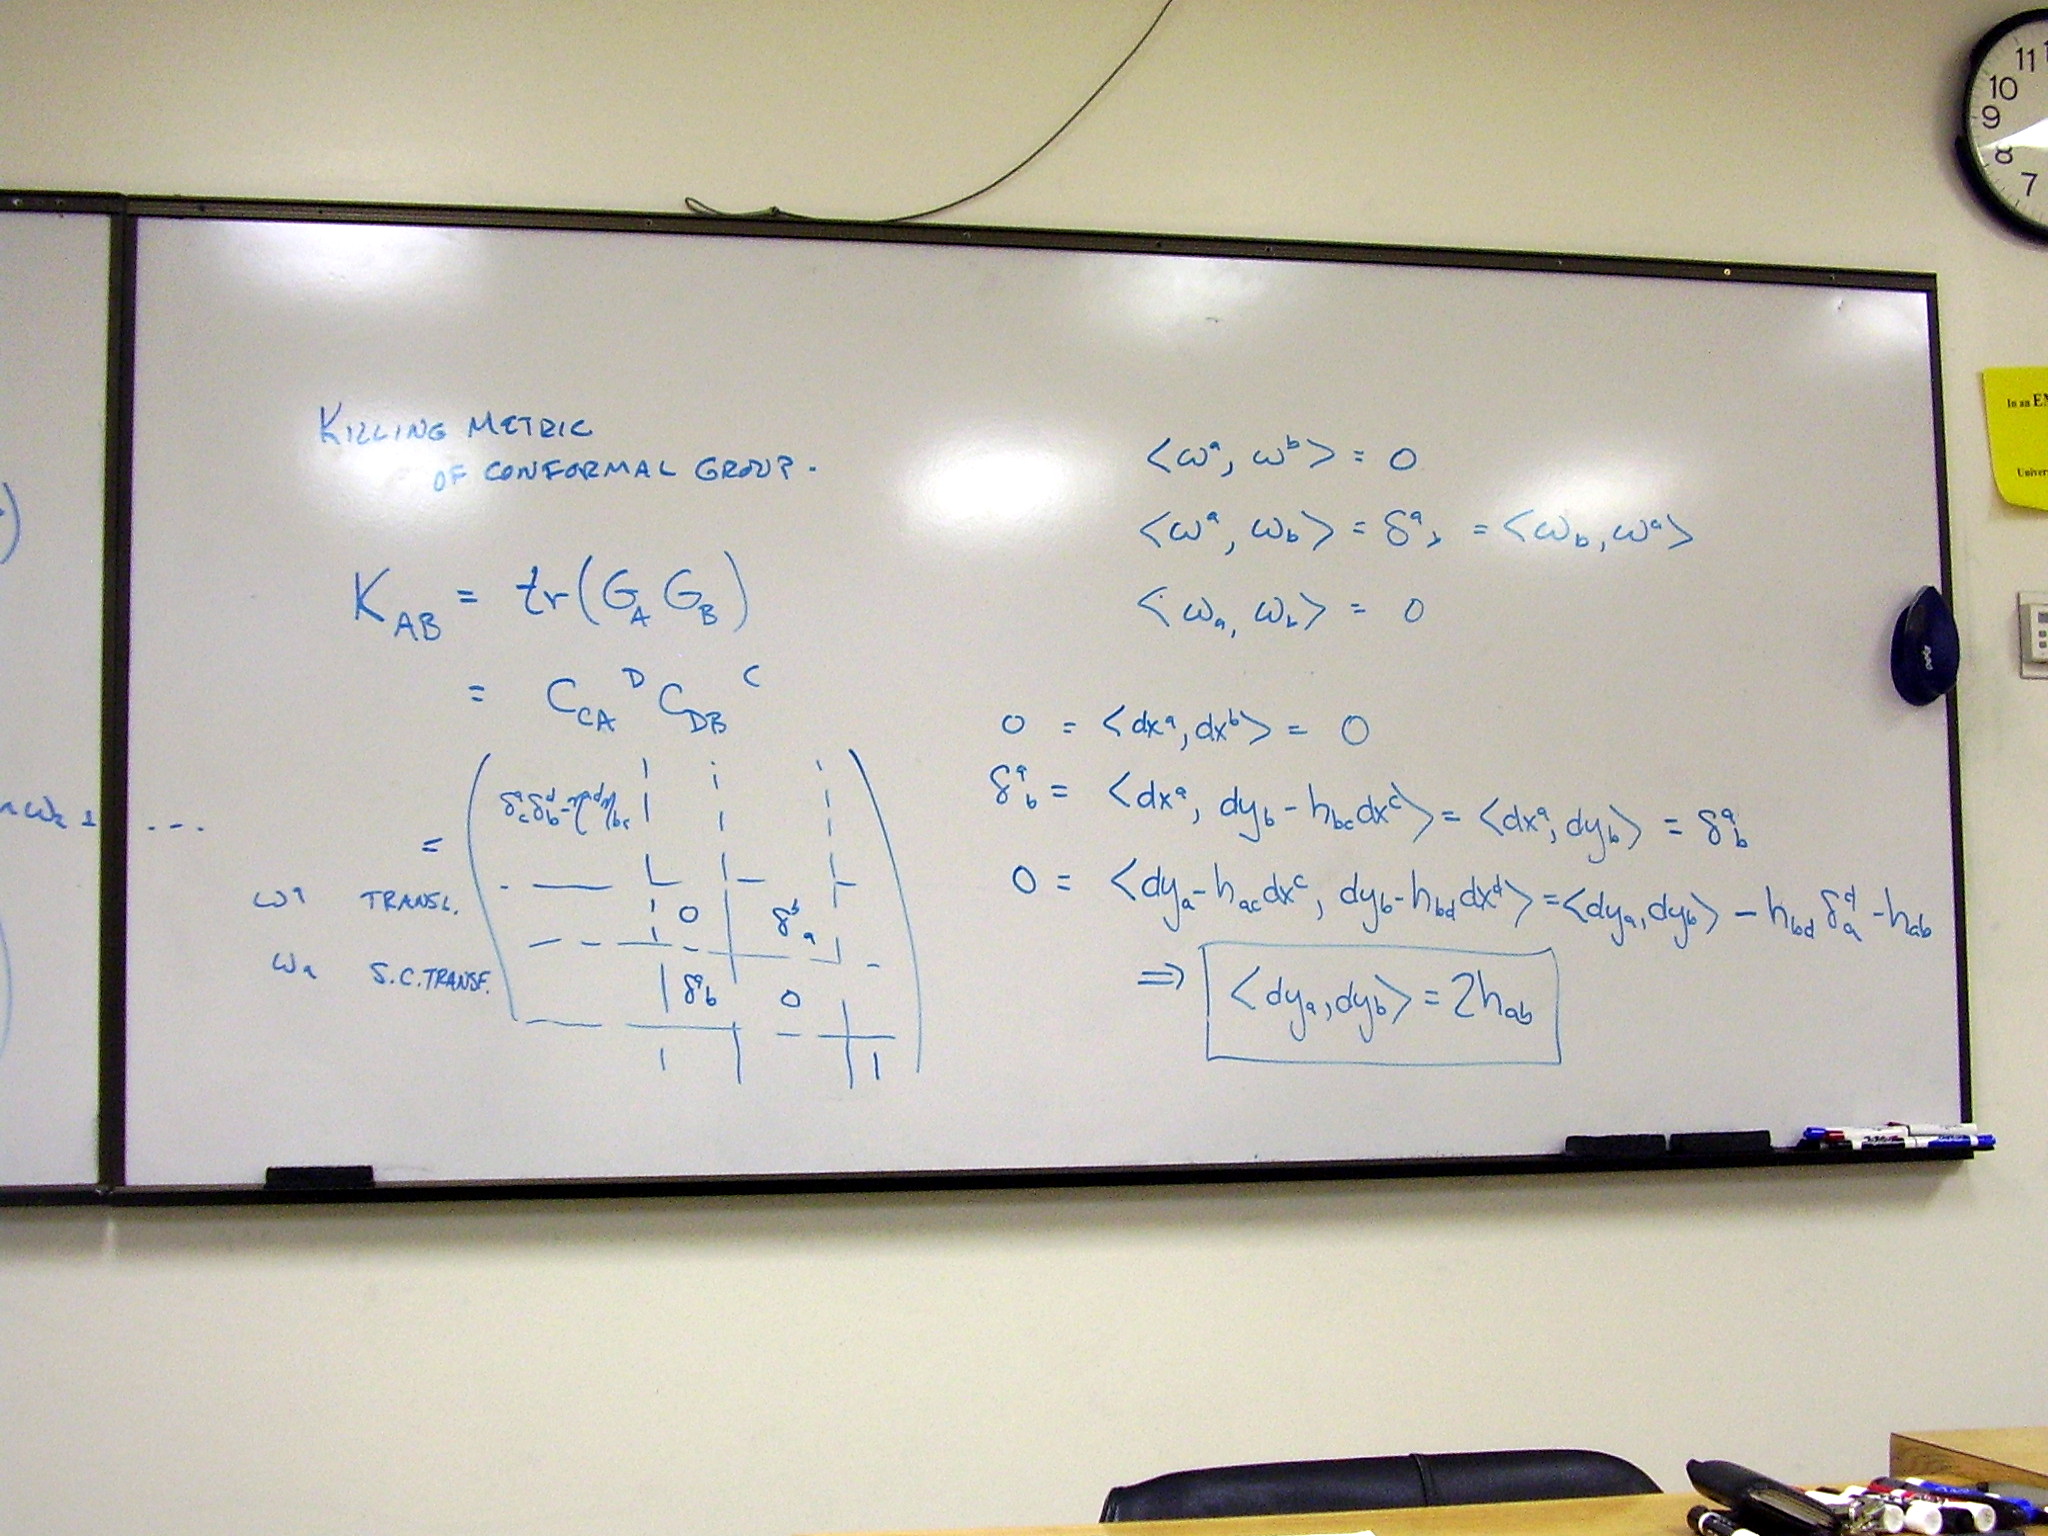 KILLING METRIC
OF CONFORMAL GROUP.
K_AB = tr(G_A G_B)
= C_CA^D C_DB^C
= ( δ^a_c δ^d_b - η^ad η_bc
ω^a TRANSL. 0 δ^b_a
ω_a S.C. TRANSF. δ^a_b 0
1 )
<ω^a, ω^b> = 0
<ω^a, ω_b> = δ^a_b = <ω_b, ω^a>
<ω_a, ω_b> = 0
0 = <dx^a, dx^b> = 0
δ^a_b = <dx^a, dy_b - h_bc dx^c> = <dx^a, dy_b> = δ^a_b
0 = <dy_a - h_ac dx^c, dy_b - h_bd dx^d> = <dy_a, dy_b> - h_bd δ^d_a - h_ab
⇒ <dy_a, dy_b> = 2h_ab
11
10
9
8
7
In an